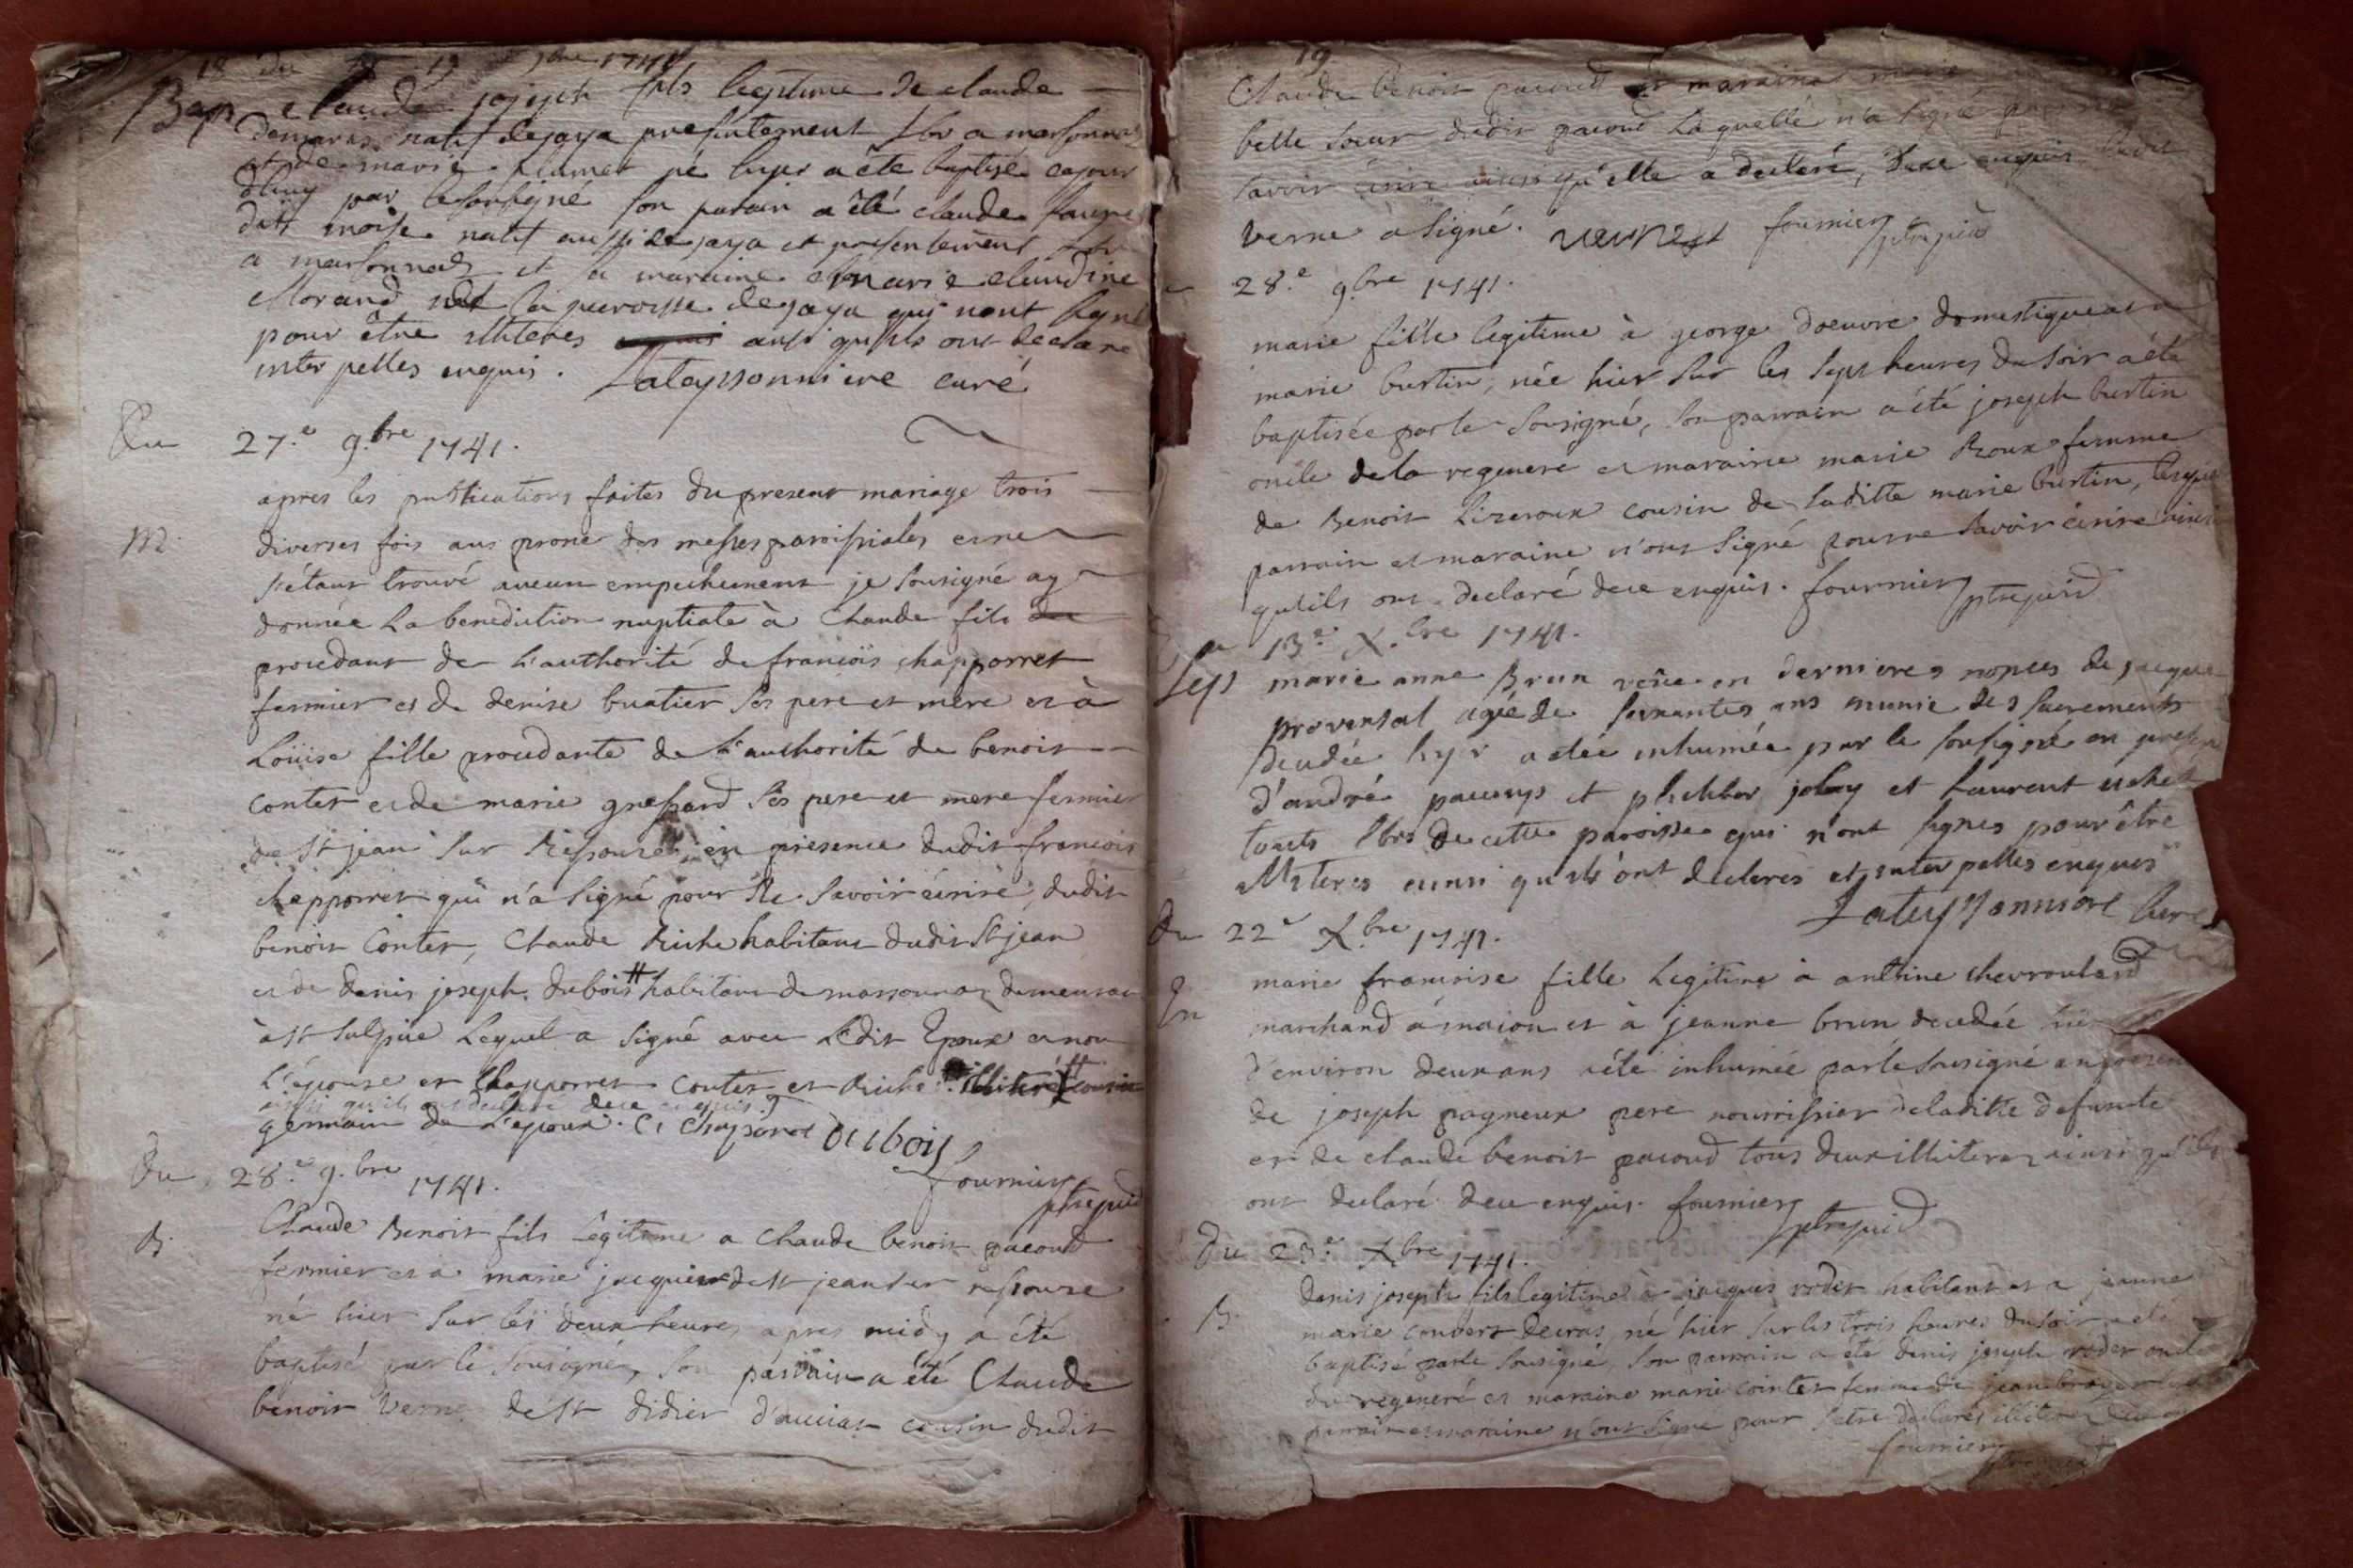 18 du 19 9bre 1741
Bap claude joseph fils legitime de claude
demaras natif de jaya presentement hbr a marsonnas
et de marie plumet né hyer a été baptisé cejour
dhuy par le soussigné son parain a été claude faure
dit moise natif aussi de jaya et presentement hbr
a marsonnas et la maraine marie claudine
Morand de la paroisse de jaya qui n'ont signé
pour être illiteres ainsi qu'ils ont declare
interpelles enquis. Lateyssonniere curé
Du 27.e 9.bre 1741.
apres les publications faites du present mariage trois
M. diverses fois aus prone des messes paroissiales et ne
s'étant trouvé aucun empechement je sousigné ay
donnée la benediction nuptiale à Claude fils
procedant de l'authorité de francois chapporret
fermier et de denise buatier ses pere et mere et à
Loüise fille procedante de l'authorité de benoit
contet et de marie gressard ses pere et mere fermier
de st jean sur Ressouze en presence dudit francois
chapporret qui n'a signé pour ne savoir écrire, dudit
benoit Contet, Claude Riche habitant dudit St jean
et de denis joseph dubois # habitant de marsonnaz demeurant
à st sulpice lequel a signé avec ledit Epoux et non
l'épouse et Chapporret contet et Riche illiteré # cousin
ainsi qu'ils ont declaré de ce enquis.
germain de l'epoux. Cl Chaporet dubois
fournier ptre
Du 28.e 9.bre 1741.
B. Claude Benoit fils legitime a Claude benoit pacoud
fermier et a marie jacquier de st jean sur ressouze
né hier sur les deux heures apres midy a été
baptisé par le sousigné, son parrain a été Claude
benoit Verne de st didier d'aussiat cousin dudit
19
Claude benoit pacoud et maraine marie
belle soeur dudit pacoud laquelle n'a signé
savoir écrire ainsi qu'elle a declaré, de ce enquis ledit
Verne à signé. vernest fournier ptre
28.e 9.bre 1741.
marie fille legitime à george doeuvre domestique et a
marie burtin, née hier sur les sept heures du soir a été
baptisée par le sousigné, son parrain a été joseph burtin
oncle de la regeneré et maraine marie Roux femme
de Benoit Lizeroux cousin de laditte marie burtin, lesquels
parrain et maraine n'ont signé pour ne savoir écrire ainsi
qu'ils ont declaré de ce enquis. fournier ptre
13.e X.bre 1741.
Sep marie anne Brun veüe en dernieres nopces de jacque
provensal agée de soixantes ans munie des sacrements
decedée hyer a étée inhumée par le sousigné en presen
d'andré et joly et Laurent
touts hbrs de cette paroisse qui n'ont signes pour être
illiteres ainsi qu'ils ont declerés et interpelles enquis
Lateyssonniere Curé
Du 22e X.bre 1741.
marie francoise fille legitime à anthine chevroulard
marchand à macon et à jeanne brun decedée hier
d'environ deux ans a été inhumée par le sousigné en presence
de joseph pagneux pere nourrissier de laditte defuncte
et de claude benoit pacoud tous deux illiteres ainsi qu'ils
ont declaré de ce enquis. fournier ptre
Du 23.e Xbre 1741.
B. denis joseph fils legitime à jacques rodet habitant et a jeanne
marie convert né hier sur les trois heures du soir a été
baptisé par le sousigné, son parrain a été denis joseph rodet oncle
du regeneré et maraine marie contet femme de jean
parrain et maraine n'ont signé pour s'etre declarés illiteres
fournier